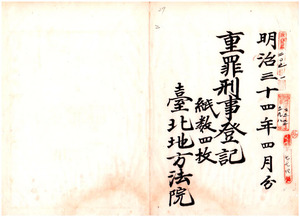 明治三十四年四月分
重罪刑事登記
紙數四枚
臺北地方法院